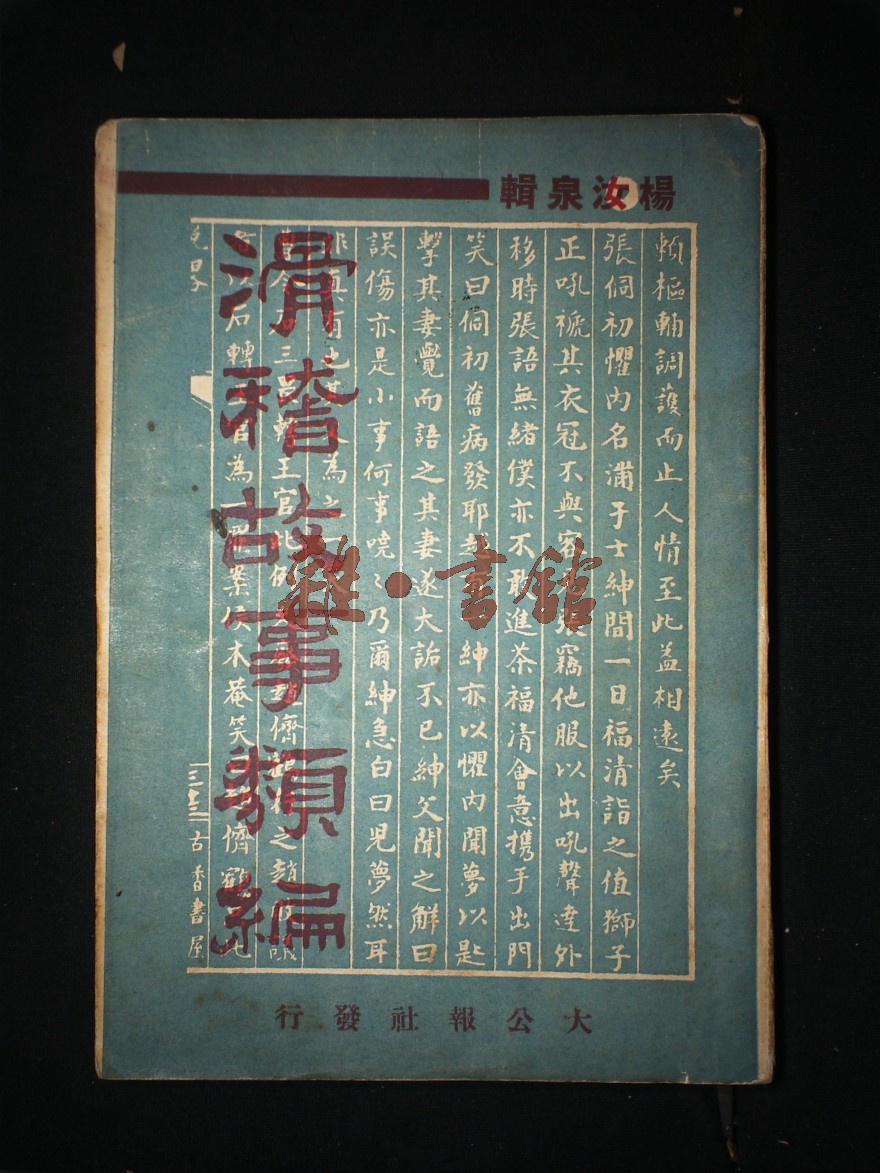 楊汝泉輯
滑稽故事類編
輔樞輔調護而止人情至此蓋相遠矣
張侗初懼內名滿于士紳間一日福清詣之值獅子
正吼褫其衣冠不與客張竊他服以出吼聲達外
移時張語無緒僕亦不敢進茶福清會意攜手出門
笑曰侗初舊病發耶紳亦以懼內聞夢以匙
擊其妻覺而語之其妻遂大詬不已紳父聞之解曰
誤傷亦是小事何事嘵〻乃爾紳急白曰兒夢然耳
為之
三王官此例儕之趙
石轉官為一案侯木菴笑儕
古香書屋
大公報社發行
雜·書館